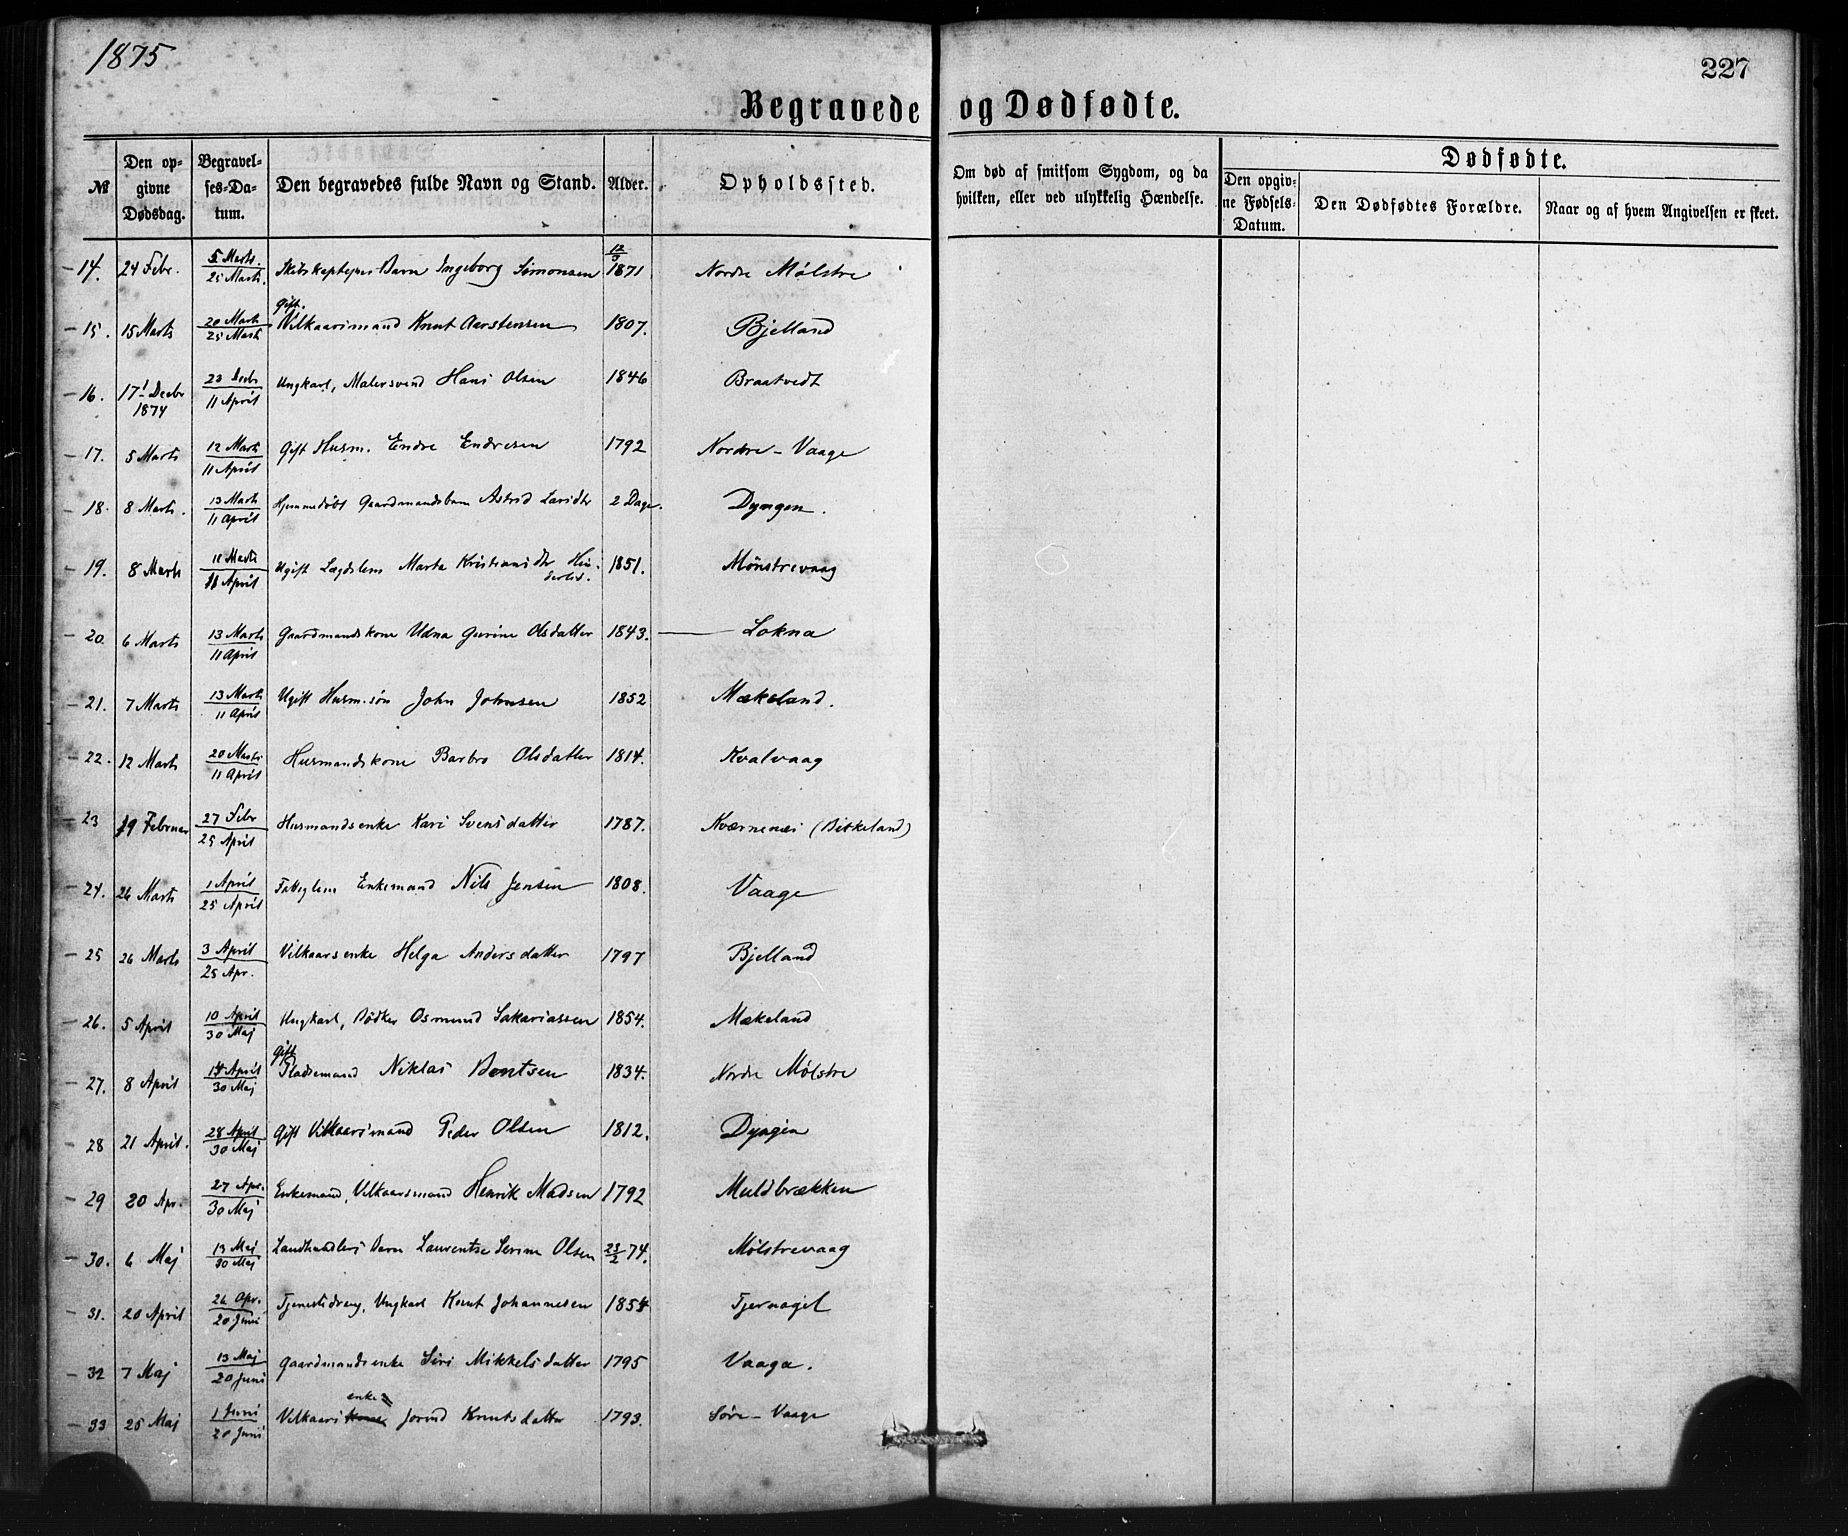 1875
227
Begravede og Dødfødte.
№ Den opgivne Dødsdag. Begravelses-Datum. Den begravedes fulde Navn og Stand. Alder. Opholdssted. Om død af smitsom Sygdom, og da hvilken, eller ved ulykkelig Hændelse. Dødfødte. Den opgivne Fødsels-Datum. Den Dødfødtes Forældre. Naar og af hvem Angivelsen er skeet.
14. 24 Febr. 5 Marts. 25 Marts. Barn Ingeborg Simonsen 1871 Nordre Mølstre
15. 15 Marts 20 Marts 25 Marts gift. Vilkaarsmand Knut Aarstensen 1807. Bjelland
16. 17 Decbr 1874 23 Decbr 11 April Ungkarl, Malersvend Hans Olsen 1846 Braatvedt
17. 5 Marts 12 Marts 11 April Gift Husm. Endre Endresen 1792 Nordre-Vaage
18. 8 Marts. 13 Marts 11 April Hjemmedøbt Gaardmandsbarn Astrid Larsdtr 2 Dage. Dyngen.
19. 8 Marts 18 Marts 11 April Ugift Lægdslem Marta Kristiansdtr 1851. Mönstrevaag
20. 6 Marts 13 Marts 11 April Gaardmandskone Udna Gurine Olsdatter 1843. Lokna
21. 7 Marts 13 Marts 11 April Ugift Husm.søn John Johnsen 1852 Mækeland.
22. 12 Marts 20 Marts 11 April Husmandskone Barbro Olsdatter 1814. Kvalvaag
23 19 Februar 27 Febr 25 April Husmandsenke Kari Svensdatter 1787. Kværnenæs (Birkeland)
24. 26 Marts 1 April 25 April Fattiglem Enkemand Nils Jensen 1808. Vaage
25 26 Marts 3 April 25 Apr. Vilkaarsenke Helga Andersdatter 1797 Bjelland
26. 5 April 10 April 30 Maj Ungkarl, Bødker Osmund Sakariassen 1854. Mækeland
27. 8 April 14 April 30 Maj gift Pladsemand Niklas Bentsen 1834. Nordre Mølstre
28 21 April. 28 April 30 Maj Gift Vilkaarsmand Peder Olsen 1812. Dyngen
29 20 Apr. 27 Apr. 30 Maj Enkemand, Vilkaarsmand Henrik Madsen 1792 Muldbrækken
30. 6 Maj 13 Maj 30 Maj Landhandlers Barn Laurentse Serine Olsen 23/2 74. Mølstrevaag
31. 20 April 26 Apr. 20 Juni Tjenestedreng, Ungkarl Knut Johannesen 1854 Tjernagel
32 7 Maj 13 Maj 20 Juni Gaardmandsenke Siri Mikkelsdatter 1795 Vaage.
33 25 Maj 1 Juni 20 Juni Vilkaars kone enke Jorind Knutsdatter 1793. Søre-Vaage